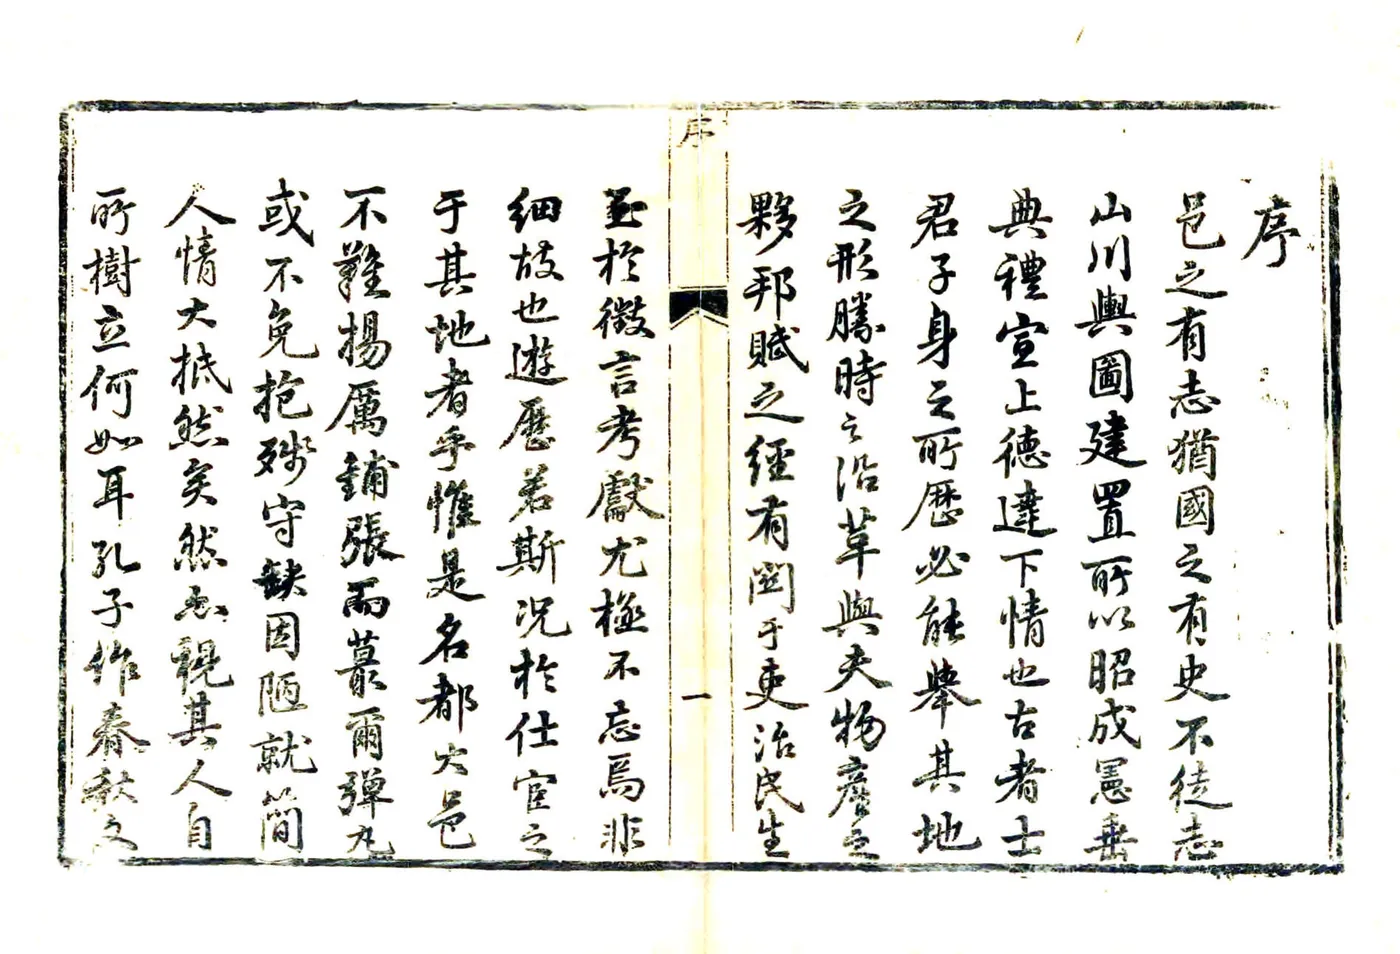 序
邑之有志猶國之有史不徒志
山川輿圖建置所以昭成憲垂
典禮宣上德達下情也古者士
君子身之所歷必能舉其地
之形勝時之沿革與夫物產之
夥邦賦之經有関于吏治民生
序
一
至於徵言考獻尤極不忘焉非
細故也遊歷若斯况於仕宦之
于其地者乎惟是名都大邑
不難揚厲鋪張而蕞爾彈丸
或不免抱殘守缺因陋就簡
人情大抵然矣然亦視其人自
所樹立何如耳孔子作春秋文